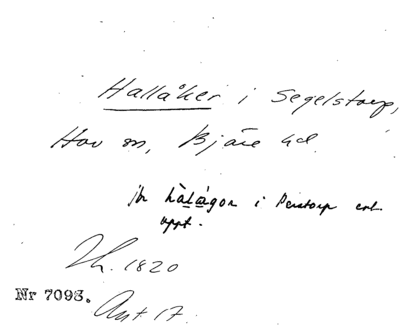 Hallåker i Segelstorp,
Hov sn, Bjäre hd.
jfr hàlágor i Perstorp enl
uppt.
Th. 1820
Nr 7093.
Ant 17.